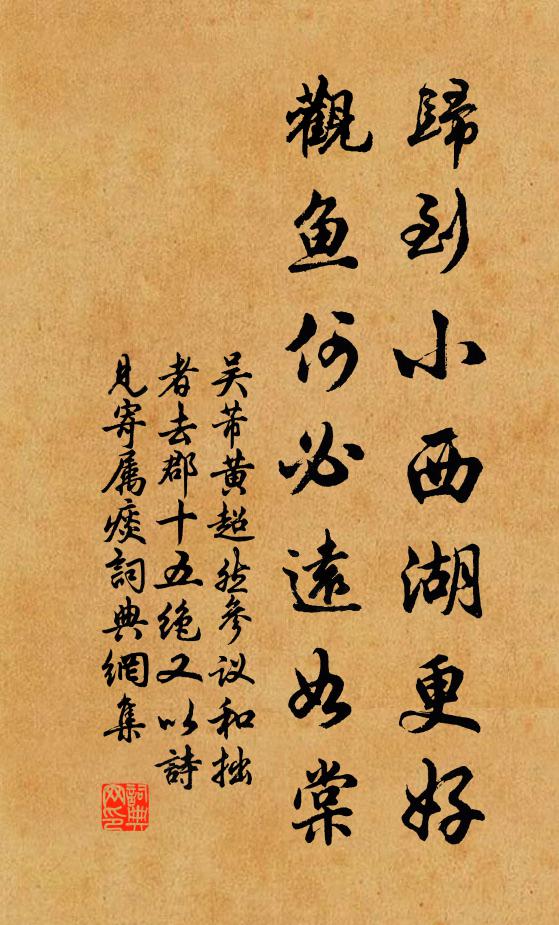 歸到小西湖更好
觀鱼何必遠如棠
吴芾黄超然參议和拙
者去郡十五绝又以詩
見寄属痰詞典網集
詞典网印